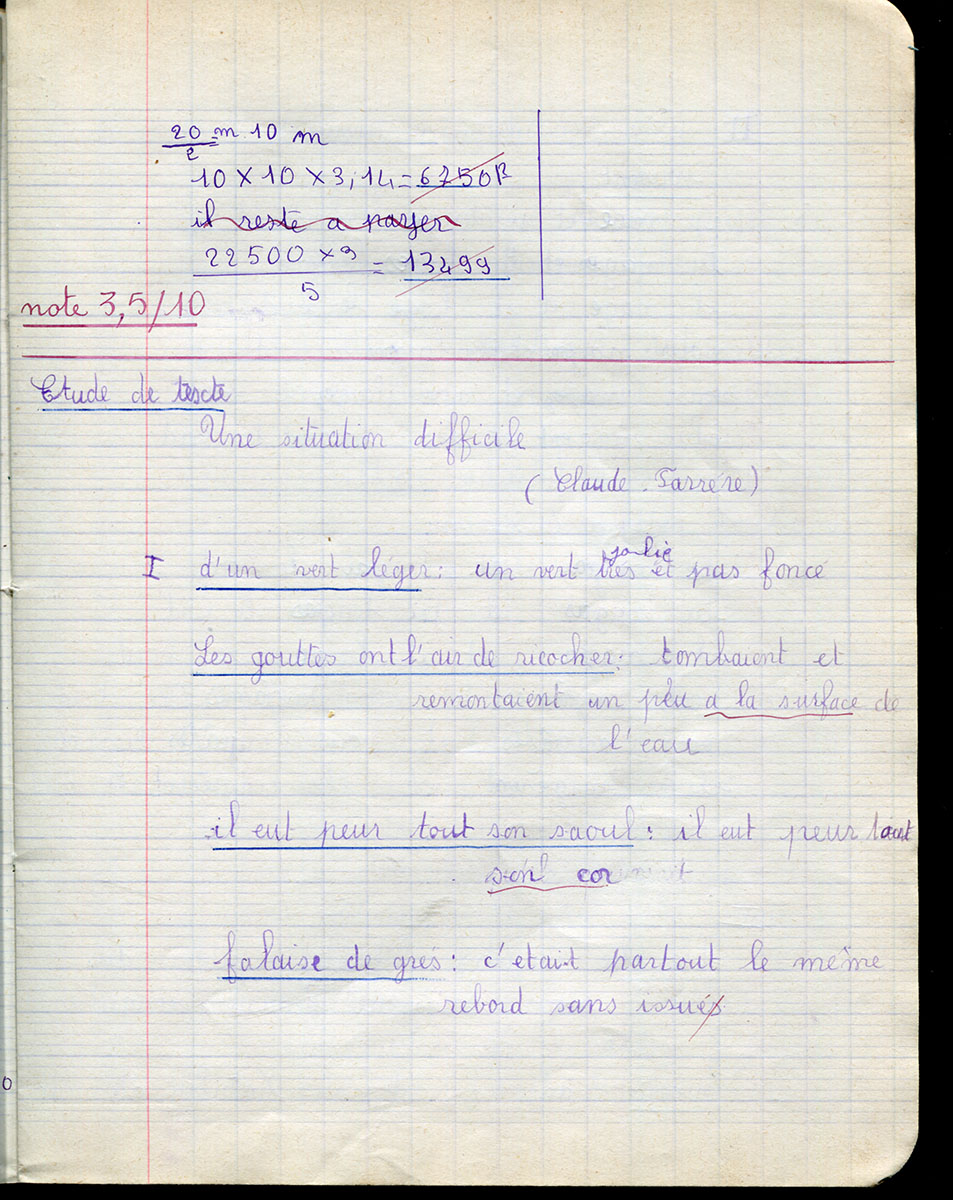 20/2 = m 10 m
10 X 10 X 3,14 = 6750 F
il reste a payer
22500 x 3 / 5 = 13499
note 3,5/10
Etude de texte
Une situation difficile
( Claude . Farrère )
I d'un vert léger : un vert très jolie et pas foncé
Les gouttes ont l'air de ricocher : tombaient et
remontaient un peu a la surface de
l'eau
il eut peur tout son saoul : il eut peur tout
son
falaise de grès : c'était partout le même
rebord sans issue
0